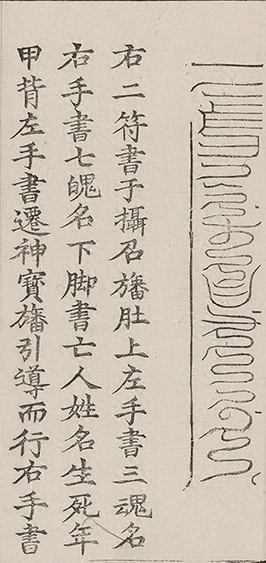 右二符書于攝召旛肚上左手書三魂名
右手書七魄名下脚書亡人姓名生死年
甲背左手書遷神寶旛引導而行右手書